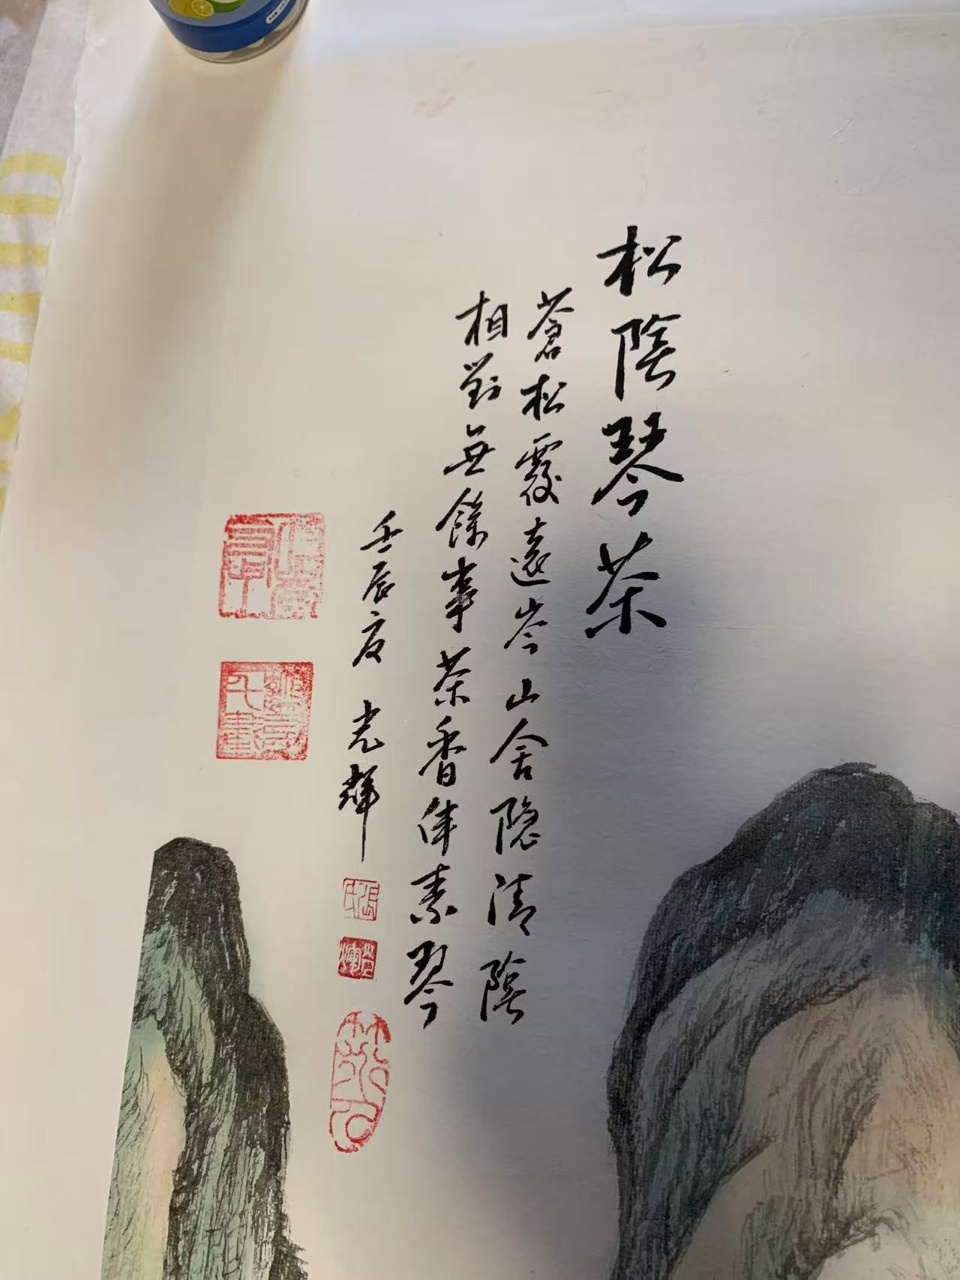 松陰琴茶
蒼松覆遠岑山舍隐清陰
相對無餘事茶香伴素琴
壬辰夏光輝
張氏